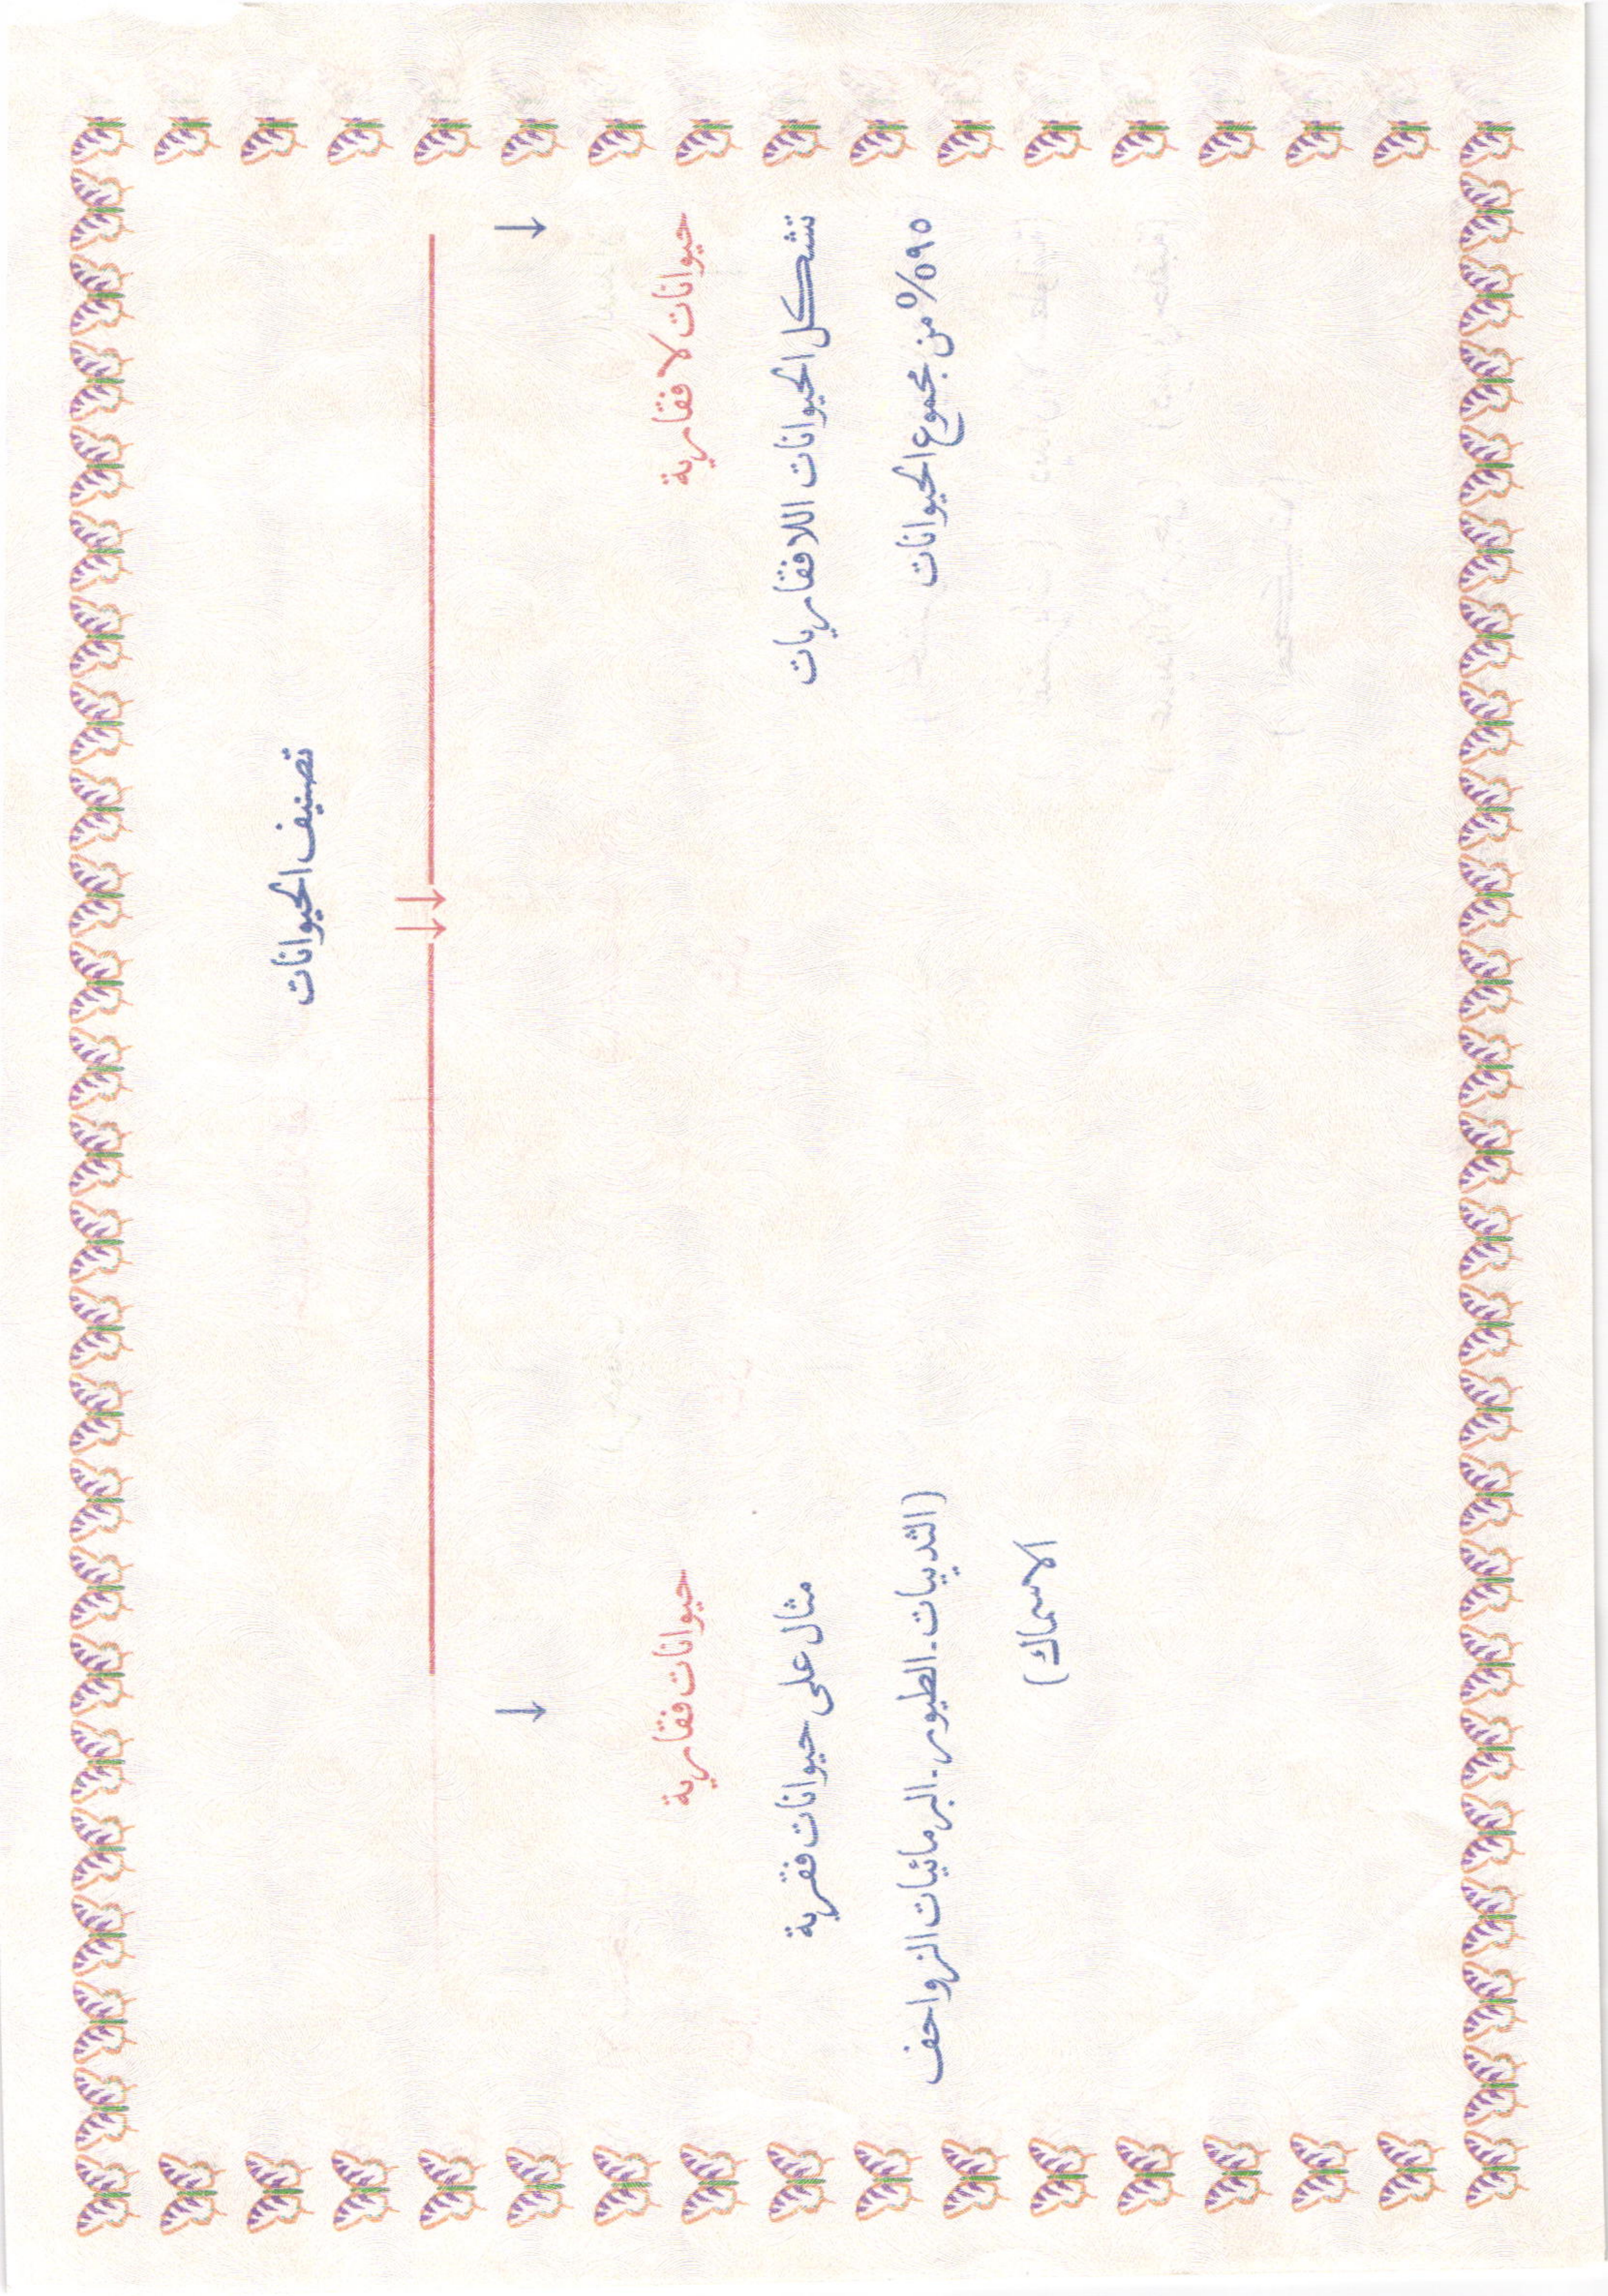 تصنيف الحيوانات
حيوانات لا فقارية
تشكل الحيوانات اللافقاريات
٩٥% من مجموع الحيوانات
حيوانات فقارية
مثال على حيوانات فقرية
(الثدييات - الطيور - البرمائيات الزواحف
الاسماك)